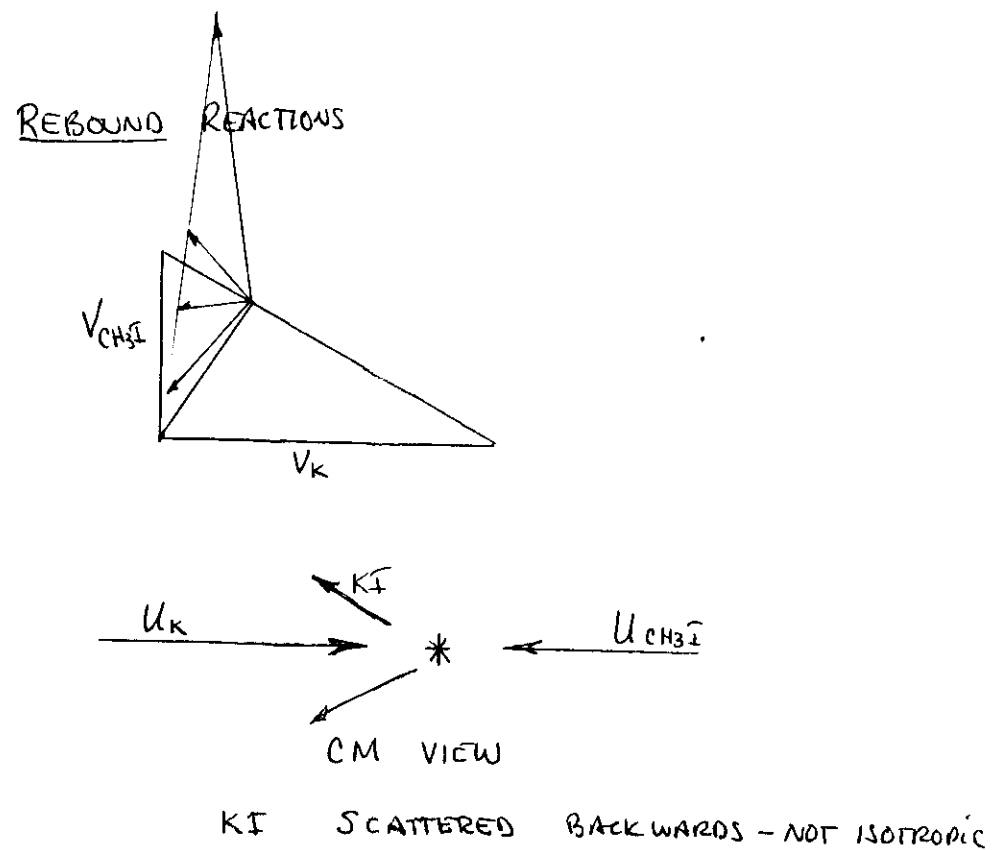 REBOUND REACTIONS
VCH3I
VK
KI
UK
UCH3I
CM VIEW
KI SCATTERED BACKWARDS - NOT ISOTROPIC